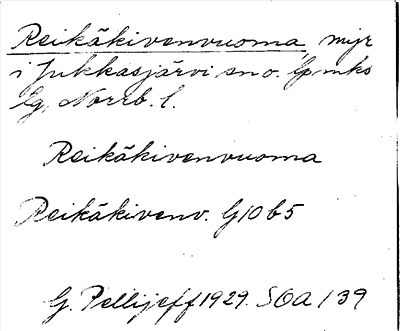 Reikäkivenvuoma, myr
i Jukkasjärvi sn o. lpmks
lg, Norrb. l.
Reikäkivenvuoma
Reikäkivenv. G10 b5
G. Pellijeff 1929. SOA /39